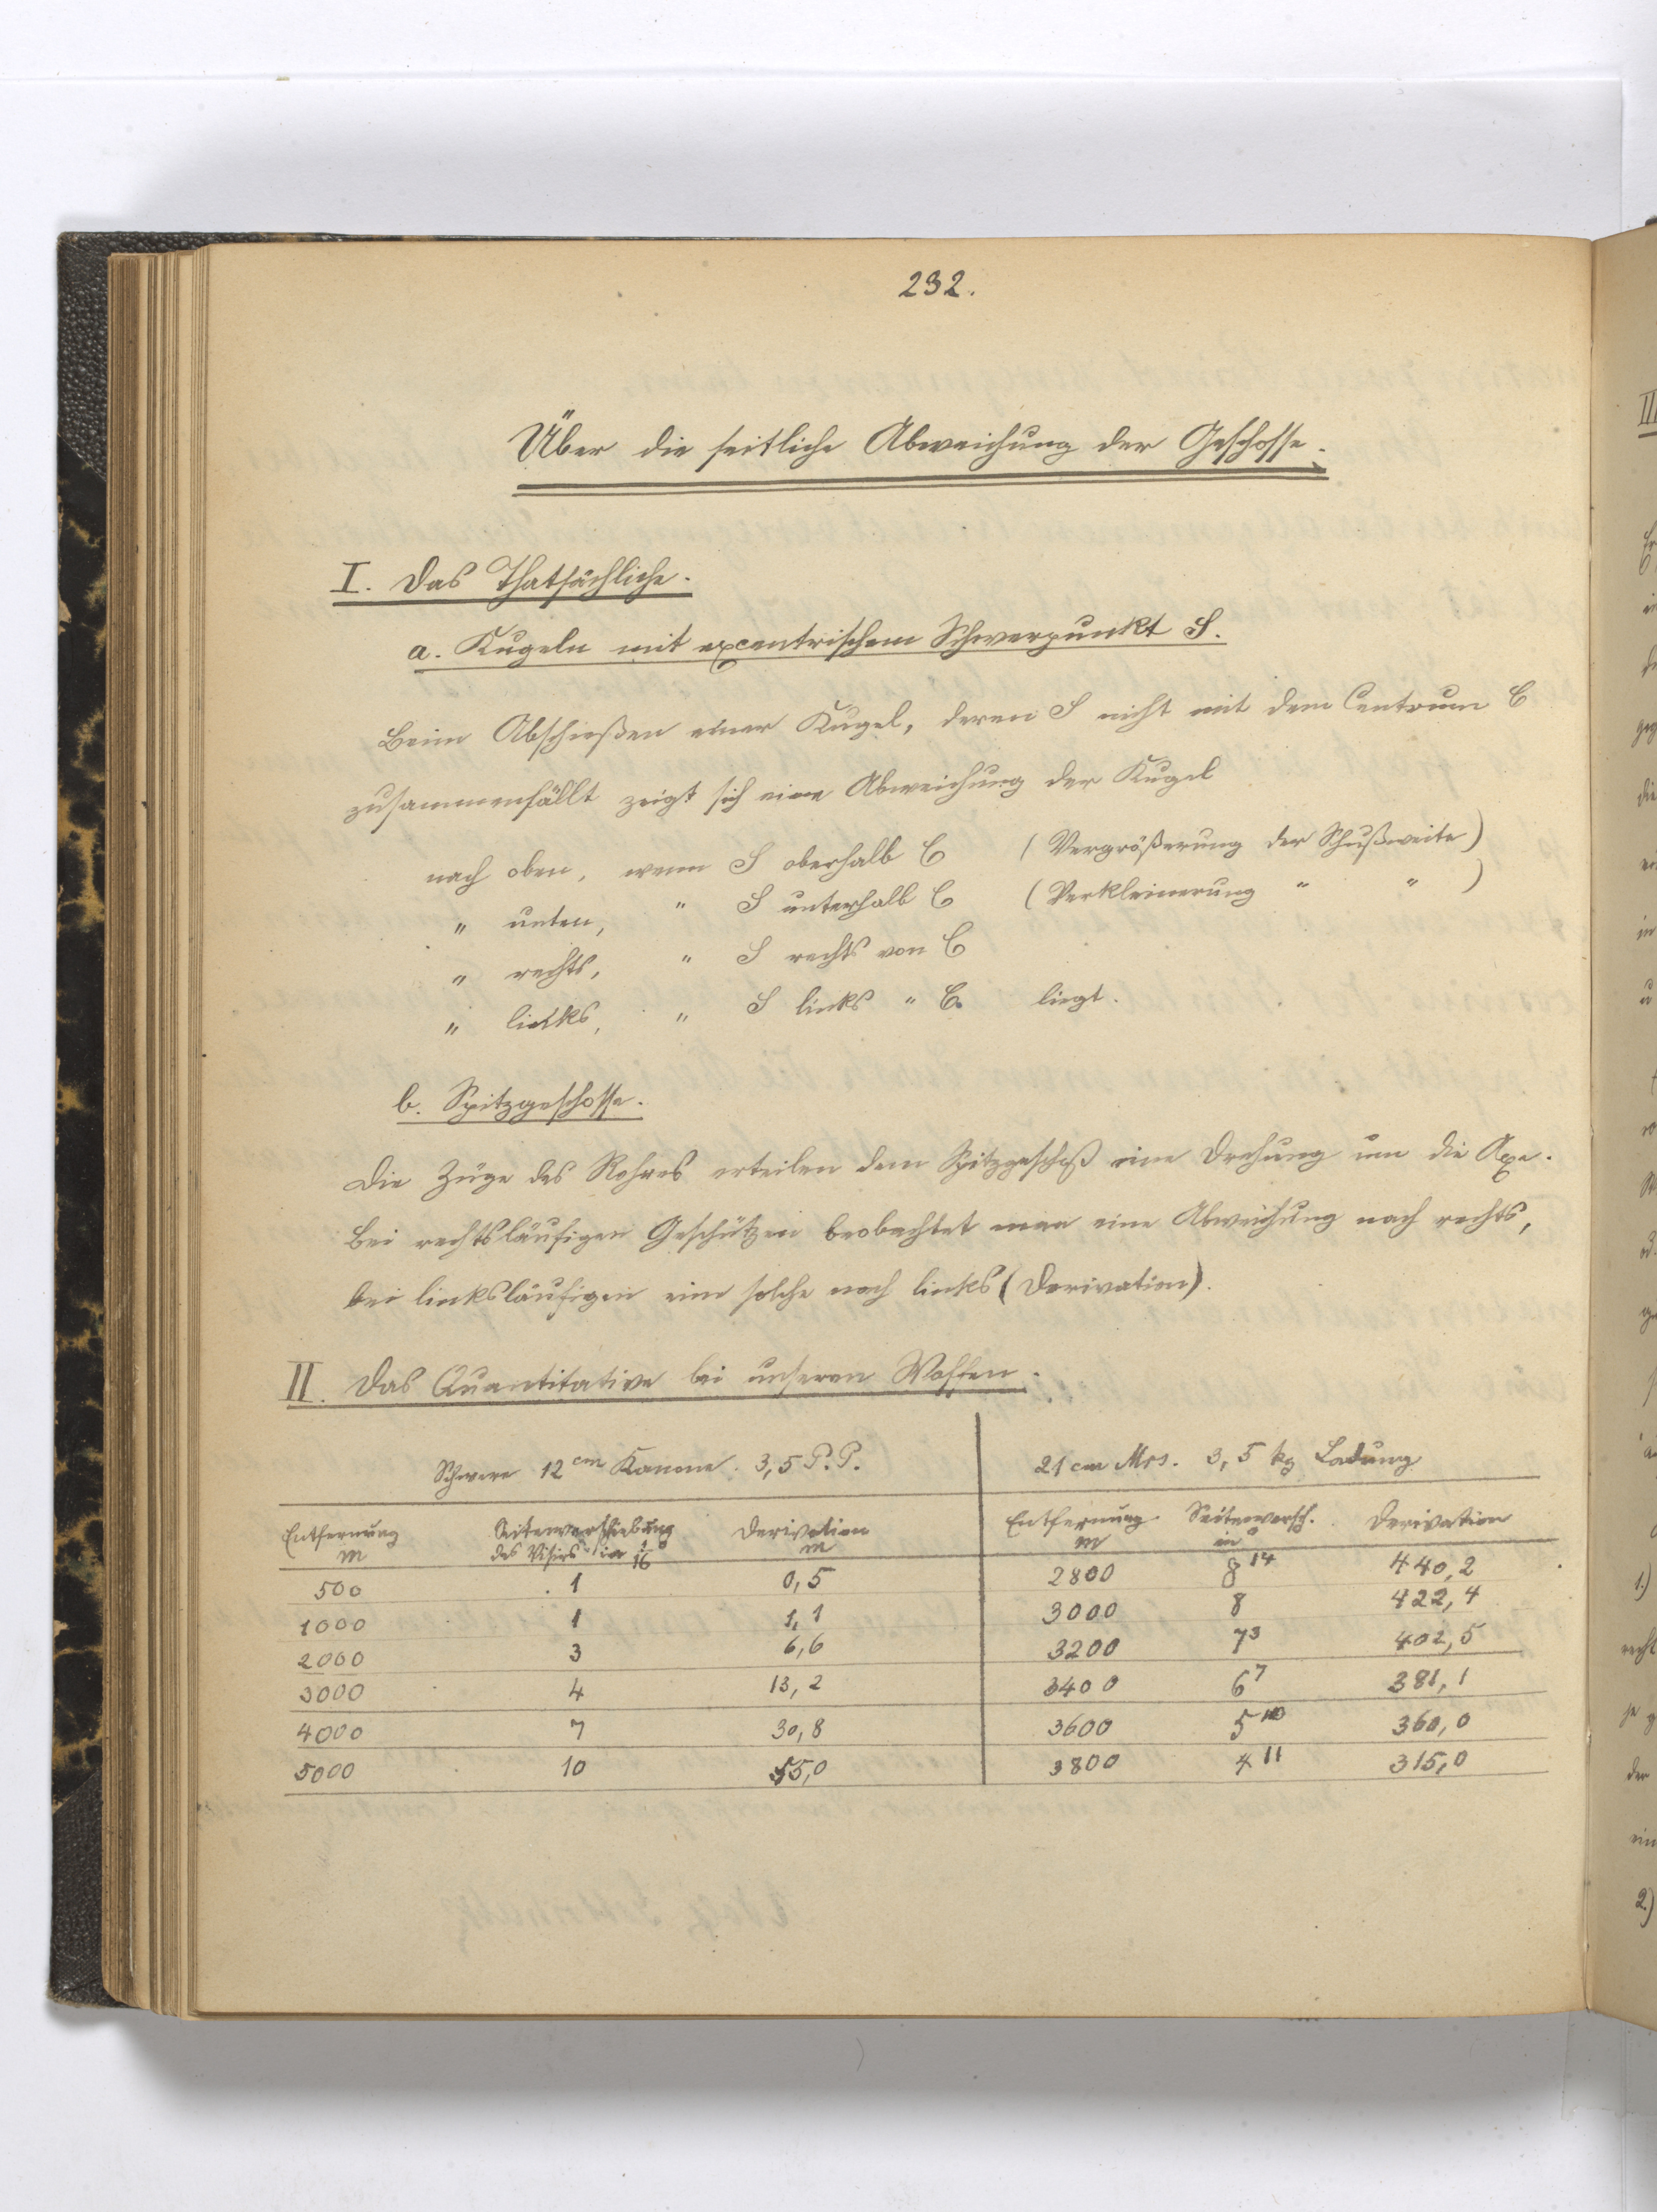 232.
Über die seitliche Abweichung der Geschosse.
I. Das Thatsächliche.
a. Kugeln mit excentrischem Schwerpunkt S.
Beim Abschießen einer Kugel, deren S nicht mit dem Centrum C
zusammenfällt zeigt sich eine Abweichung der Kugel
nach oben, wenn S oberhalb C (Vergrößerung der Schußweite)
" unten, " S unterhalb C (Verkleinerung " " )
" rechts, " S rechts von C
" links, " S links " C. liegt.
b. Spitzgeschosse.
Die Züge des Rohres erteilen dem Spitzgeschoß eine Drehung um die Axe.
Bei rechtsläufigen Geschützen beobachtet man eine Abweichung nach rechts,
bei linksläufigen eine solche nach links (Derivation).
II. Das Quantitative bei unseren Waffen.
Schwere 12 cm Kanone. 3,5 P.P. 21 cm Mrs. 3,5 kg Ladung
Entfernung Seitenverschiebung Derivation Entfernung Seitenversch. Derivation
m des Visirs in 1/16° m m in °
500 1 0,5 2800 8 14 440,2
1000 1 1,1 3000 8 422,4
2000 3 6,6 3200 7 3 402,5
3000 4 13,2 3400 6 7 381,1
4000 7 30,8 3600 5 10 360,0
5000 10 55,0 3800 4 11 315,0